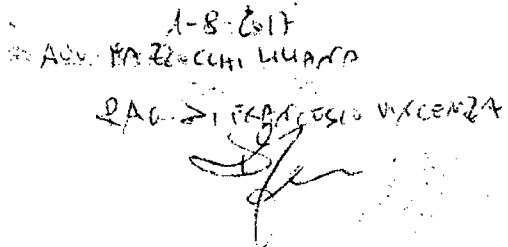 1-8-2017
AVV. MAZZOCCHI LILIANA
RAG. DI FRANCESCO VINCENZA